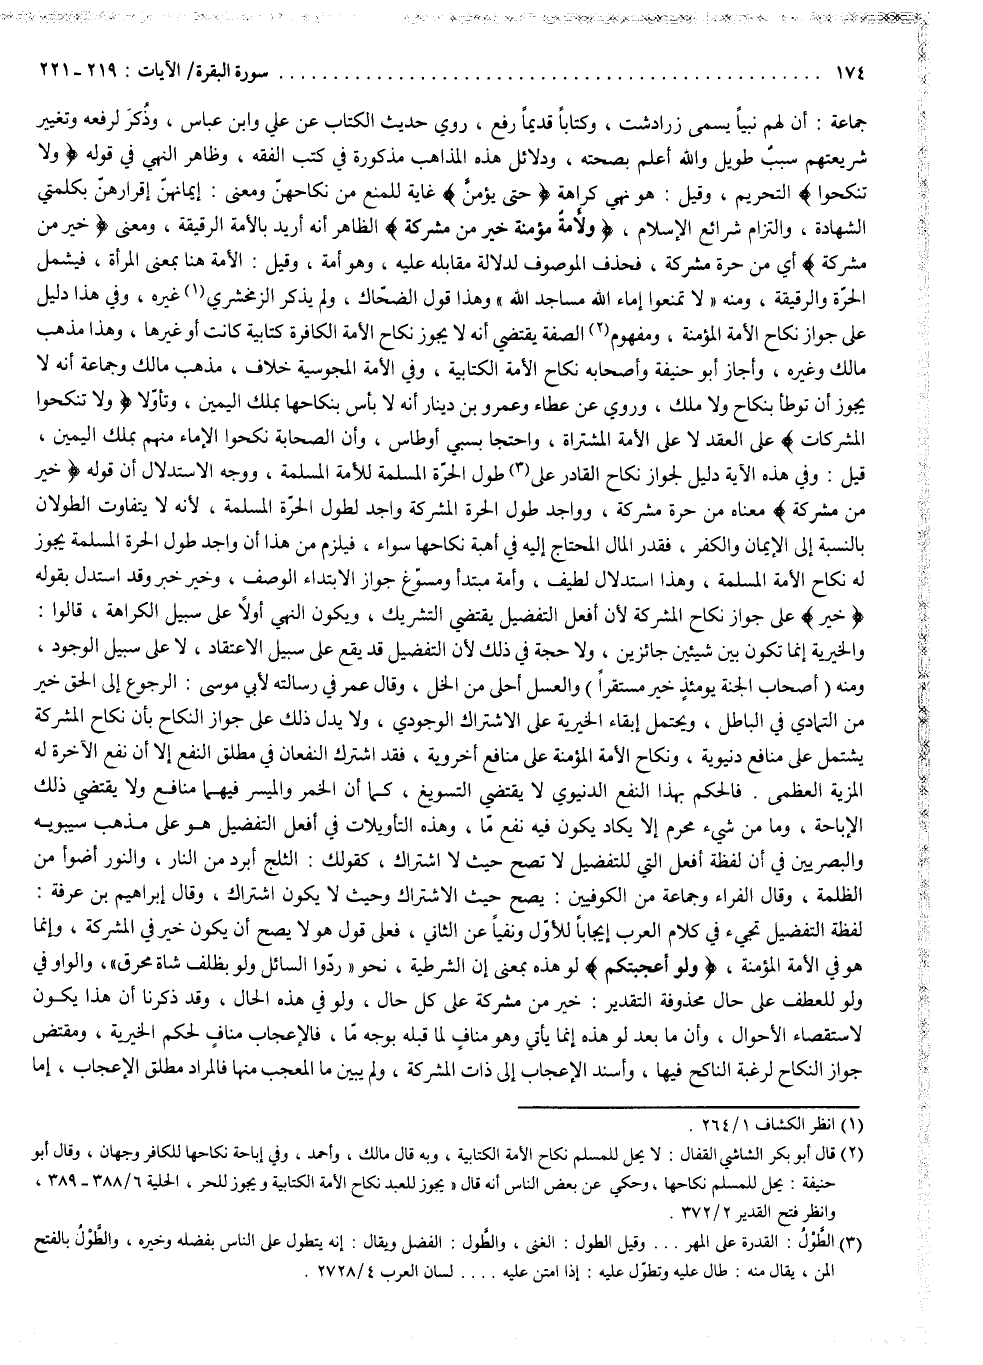 ١٧٤ . . . . . . . . . . . . . . . . . . . . . . . . . . . . . . . . . . . . . . . . . . . . . . . . . . سورة البقرة/ الآيات : ٢١٩ ـ ٢٢١
جماعة : أن لهم نبياً يسمى زرادشت ، وكتاباً قديماً رفع ، روي حديث الكتاب عن علي وابن عباس ، وذُكرَ لرفعه وتغيير
شريعتهم سببٌ طويل والله أعلم بصحته ، ودلائل هذه المذاهب مذكورة في كتب الفقه ، وظاهر النهي في قوله ﴿ ولا
تنكحوا ﴾ التحريم ، وقيل : هو نهي كراهة ﴿ حتى يؤمنَّ ﴾ غاية للمنع من نكاحهنّ ومعنى : إيمانهنّ إقرارهنّ بكلمتي
الشهادة ، والتزام شرائع الإسلام ، ﴿ ولأمةٌ مؤمنة خير من مشركة ﴾ الظاهر أنه أريد بالأمة الرقيقة ، ومعنى ﴿ خير من
مشركة ﴾ أي من حرة مشركة ، فحذف الموصوف لدلالة مقابله عليه ، وهو أمة ، وقيل : الأمة هنا بمعنى المرأة ، فيشمل
الحرّة والرقيقة ، ومنه « لا تمنعوا إماء الله مساجد الله » وهذا قول الضحّاك ، ولم يذكر الزمخشري(١) غيره ، وفي هذا دليل
على جواز نكاح الأمة المؤمنة ، ومفهوم(٢) الصفة يقتضي أنه لا يجوز نكاح الأمة الكافرة كتابية كانت أو غيرها ، وهذا مذهب
مالك وغيره ، وأجاز أبو حنيفة وأصحابه نكاح الأمة الكتابية ، وفي الأمة المجوسية خلاف ، مذهب مالك وجماعة أنه لا
يجوز أن توطأ بنكاح ولا ملك ، وروي عن عطاء وعمرو بن دينار أنه لا بأس بنكاحها بملك اليمين ، وتأوّلا ﴿ ولا تنكحوا
المشركات ﴾ على العقد لا على الأمة المشتراة ، واحتجا بسبي أوطاس ، وأن الصحابة نكحوا الإماء منهم بملك اليمين ،
قيل : وفي هذه الآية دليل لجواز نكاح القادر على(٣) طول الحرّة المسلمة للأمة المسلمة ، ووجه الاستدلال أن قوله ﴿ خير
من مشركة ﴾ معناه من حرة مشركة ، وواجد طول الحرة المشركة واجد لطول الحرّة المسلمة ، لأنه لا يتفاوت الطولان
بالنسبة إلى الإيمان والكفر ، فقدر المال المحتاج إليه في أهبة نكاحها سواء ، فيلزم من هذا أن واجد طول الحرة المسلمة يجوز
له نكاح الأمة المسلمة ، وهذا استدلال لطيف ، وأمة مبتدأ ومسوّغ جواز الابتداء الوصف ، وخير خبر وقد استدل بقوله
﴿ خير ﴾ على جواز نكاح المشركة لأن أفعل التفضيل يقتضي التشريك ، ويكون النهي أولاً على سبيل الكراهة ، قالوا :
والخيرية إنما تكون بين شيئين جائزين ، ولا حجة في ذلك لأن التفضيل قد يقع على سبيل الاعتقاد ، لا على سبيل الوجود ،
ومنه ( أصحاب الجنة يومئذٍ خير مستقراً ) والعسل أحلى من الخل ، وقال عمر في رسالته لأبي موسى : الرجوع إلى الحق خير
من التمادي في الباطل ، ويحتمل إبقاء الخيرية على الاشتراك الوجودي ، ولا يدل ذلك على جواز النكاح بأن نكاح المشركة
يشتمل على منافع دنيوية ، ونكاح الأمة المؤمنة على منافع أخروية ، فقد اشترك النفعان في مطلق النفع إلا أن نفع الآخرة له
المزية العظمى . فالحكم بهذا النفع الدنيوي لا يقتضي التسويغ ، كما أن الخمر والميسر فيهما منافع ولا يقتضي ذلك
الإباحة ، وما من شيء محرم إلا يكاد يكون فيه نفع مّا ، وهذه التأويلات في أفعل التفضيل هو على مذهب سيبويه
والبصريين في أن لفظة أفعل التي للتفضيل لا تصح حيث لا اشتراك ، كقولك : الثلج أبرد من النار ، والنور أضوأ من
الظلمة ، وقال الفراء وجماعة من الكوفيين : يصح حيث الاشتراك وحيث لا يكون اشتراك ، وقال إبراهيم بن عرفة :
لفظة التفضيل تجيء في كلام العرب إيجاباً للأوّل ونفياً عن الثاني ، فعلى قول هو لا يصح أن يكون خير في المشركة ، وإنما
هو في الأمة المؤمنة ، ﴿ ولو أعجبتكم ﴾ لو هذه بمعنى إن الشرطية ، نحو « ردّوا السائل ولو بظلف شاة محرق» ، والواو في
ولو للعطف على حال محذوفة التقدير : خير من مشركة على كل حال ، ولو في هذه الحال ، وقد ذكرنا أن هذا يكون
لاستقصاء الأحوال ، وأن ما بعد لو هذه إنما يأتي وهو منافٍ لما قبله بوجه مّا ، فالإعجاب منافٍ لحكم الخيرية ، ومقتض
جواز النكاح لرغبة الناكح فيها ، وأسند الإعجاب إلى ذات المشركة ، ولم يبين ما المعجب منها فالمراد مطلق الإعجاب ، إما
(١) انظر الكشاف ٢٦٤/١ .
(٢) قال أبو بكر الشاشي القفال : لا يحل للمسلم نكاح الأمة الكتابية ، وبه قال مالك ، وأحمد ، وفي إباحة نكاحها للكافر وجهان ، وقال أبو
حنيفة : يحل للمسلم نكاحها ، وحكي عن بعض الناس أنه قال « يجوز للعبد نكاح الأمة الكتابية ويجوز للحر ، الحلية ٣٨٨/٦ ـ ٣٨٩ ،
وانظر فتح القدير ٣٧٢/٢ .
(٣) الطَّوْلُ : القدرة على المهر . . . وقيل الطول : الغنى ، والطَّول : الفضل ويقال : إنه يتطول على الناس بفضله وخيره ، والطَّوْلُ بالفتح
المن ، يقال منه : طال عليه وتطوّل عليه : إذا امتن عليه . . . . لسان العرب ٢٧٢٨/٤ .